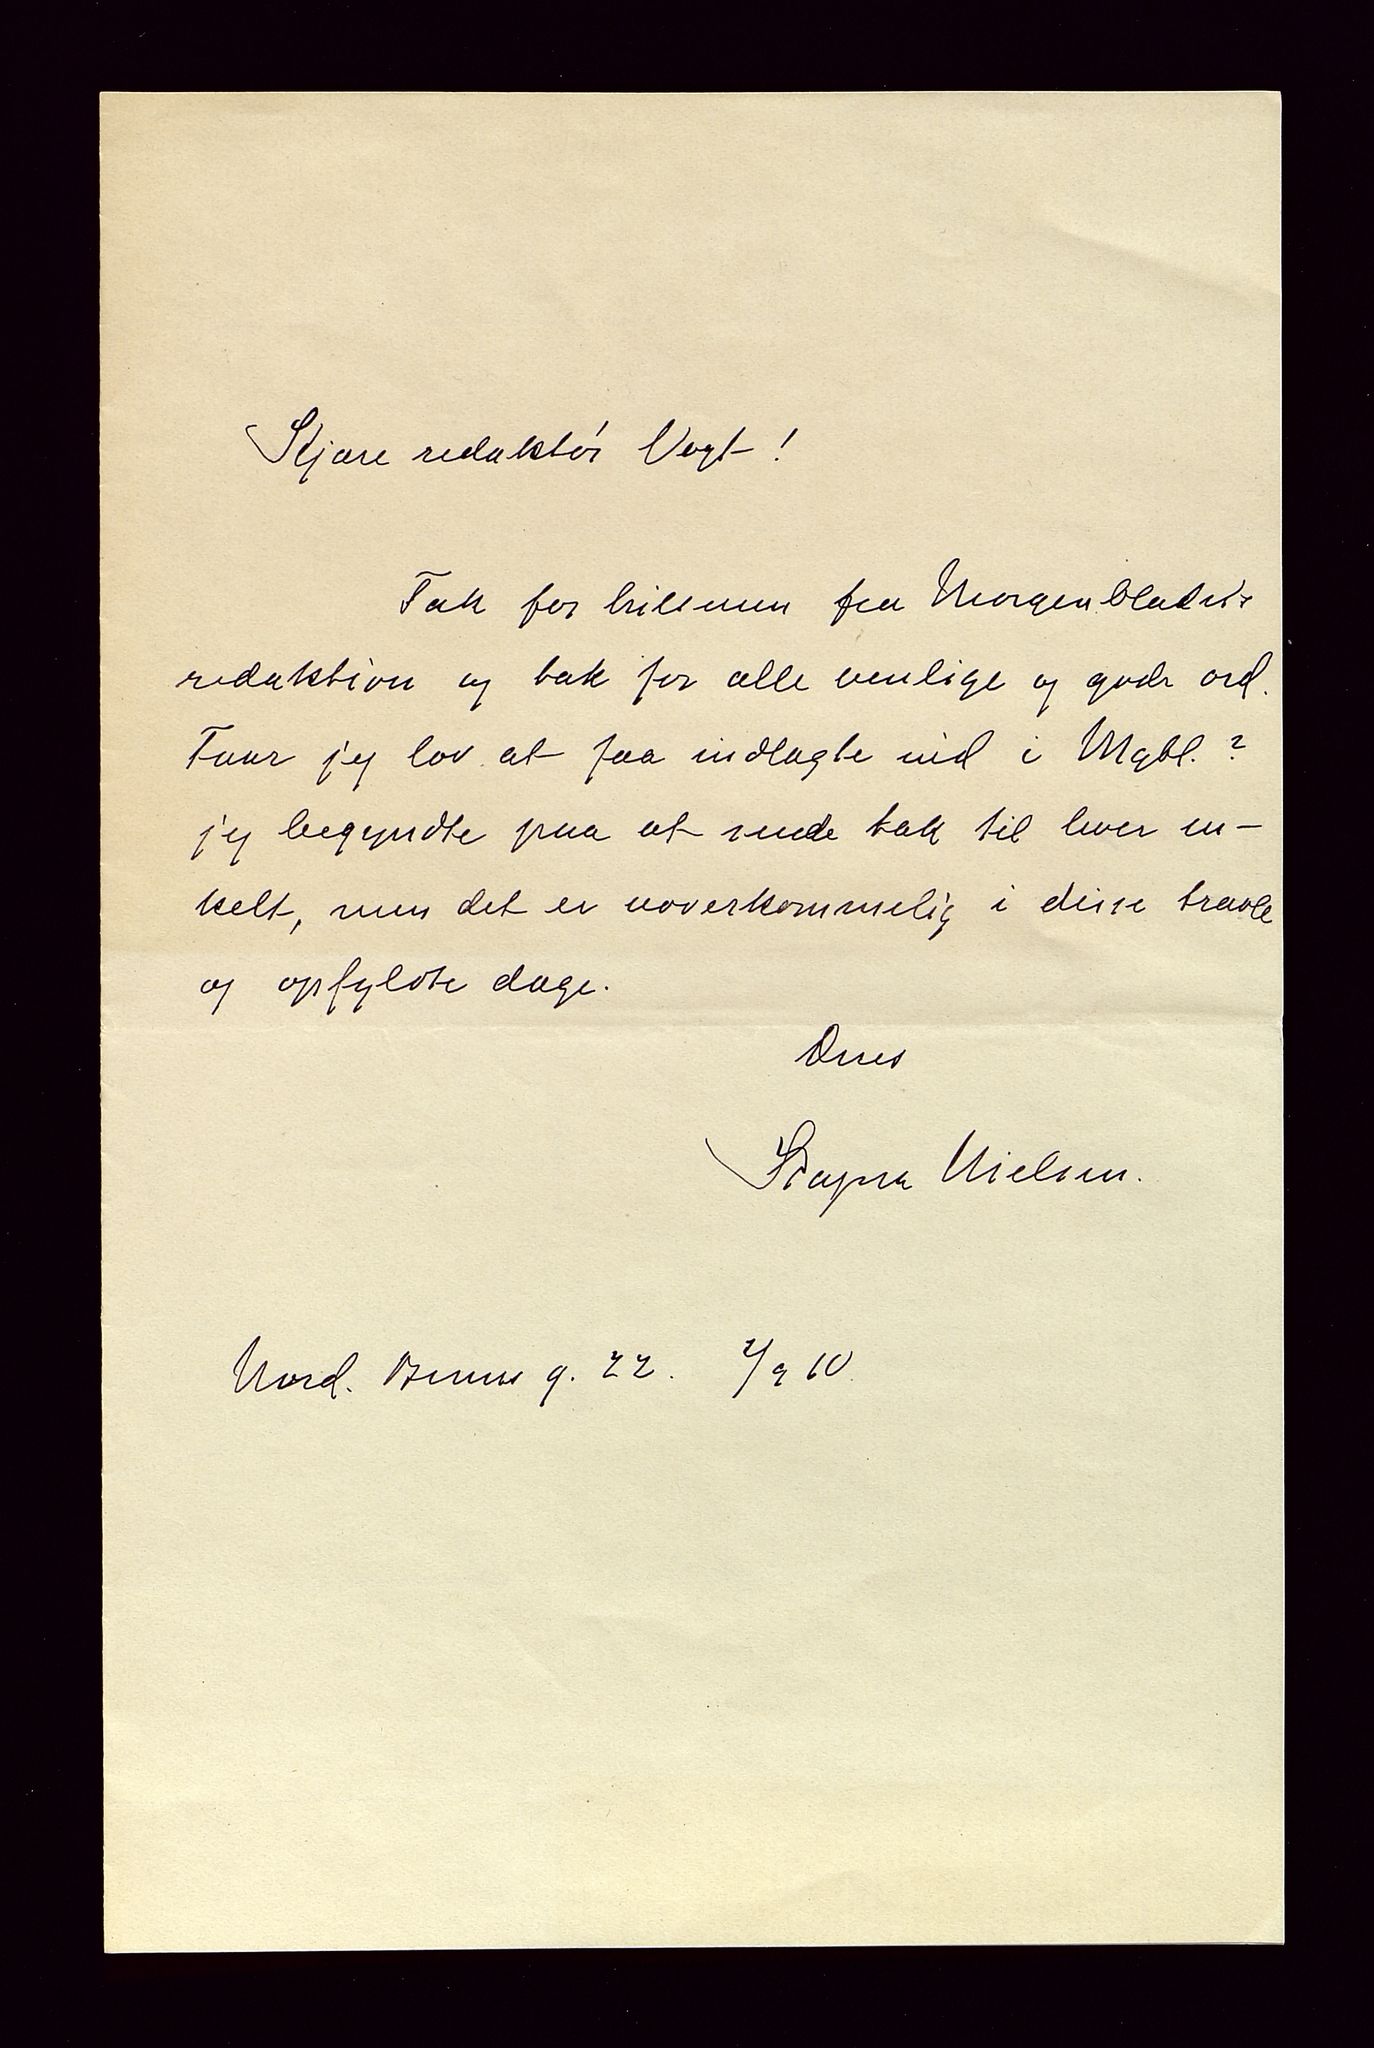 Kjære redaktør Vogt!
Tak for hilsenen fra Morgenbladets
redaktion og tak for alle venlige og gode ord.
Faar jeg lov at faa indlagte ind i Mgbl.?
jeg begyndte paa at sende tak til hver en-
kelt, men det er uoverkommelig i disse travle
og opfyldte dage.
Deres
Ragna Nielsen.
Nord. Bruns g. 22. 2/9 10